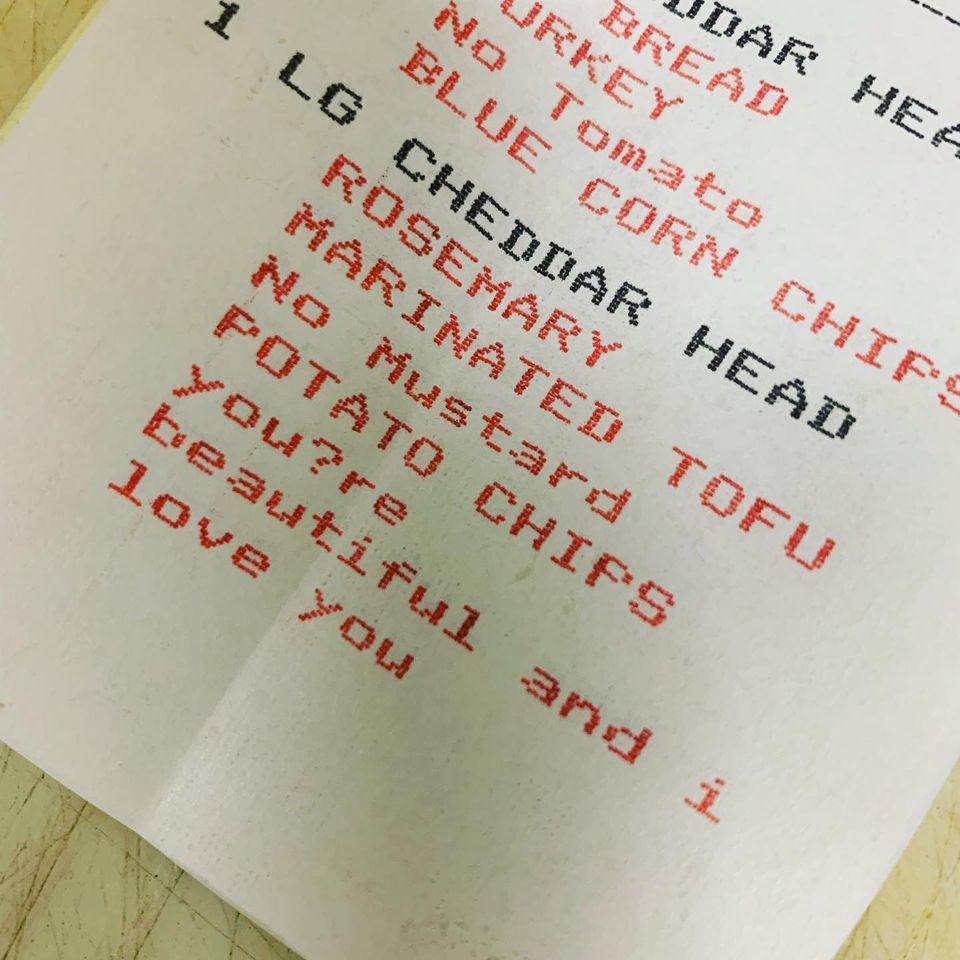 HEA
BREAD
URKEY
No Tomato
BLUE CORN CHIPS
1 LG CHEDDAR HEAD
ROSEMARY
MARINATED TOFU
No Mustard
POTATO CHIPS
you?re
beautiful and i
love you